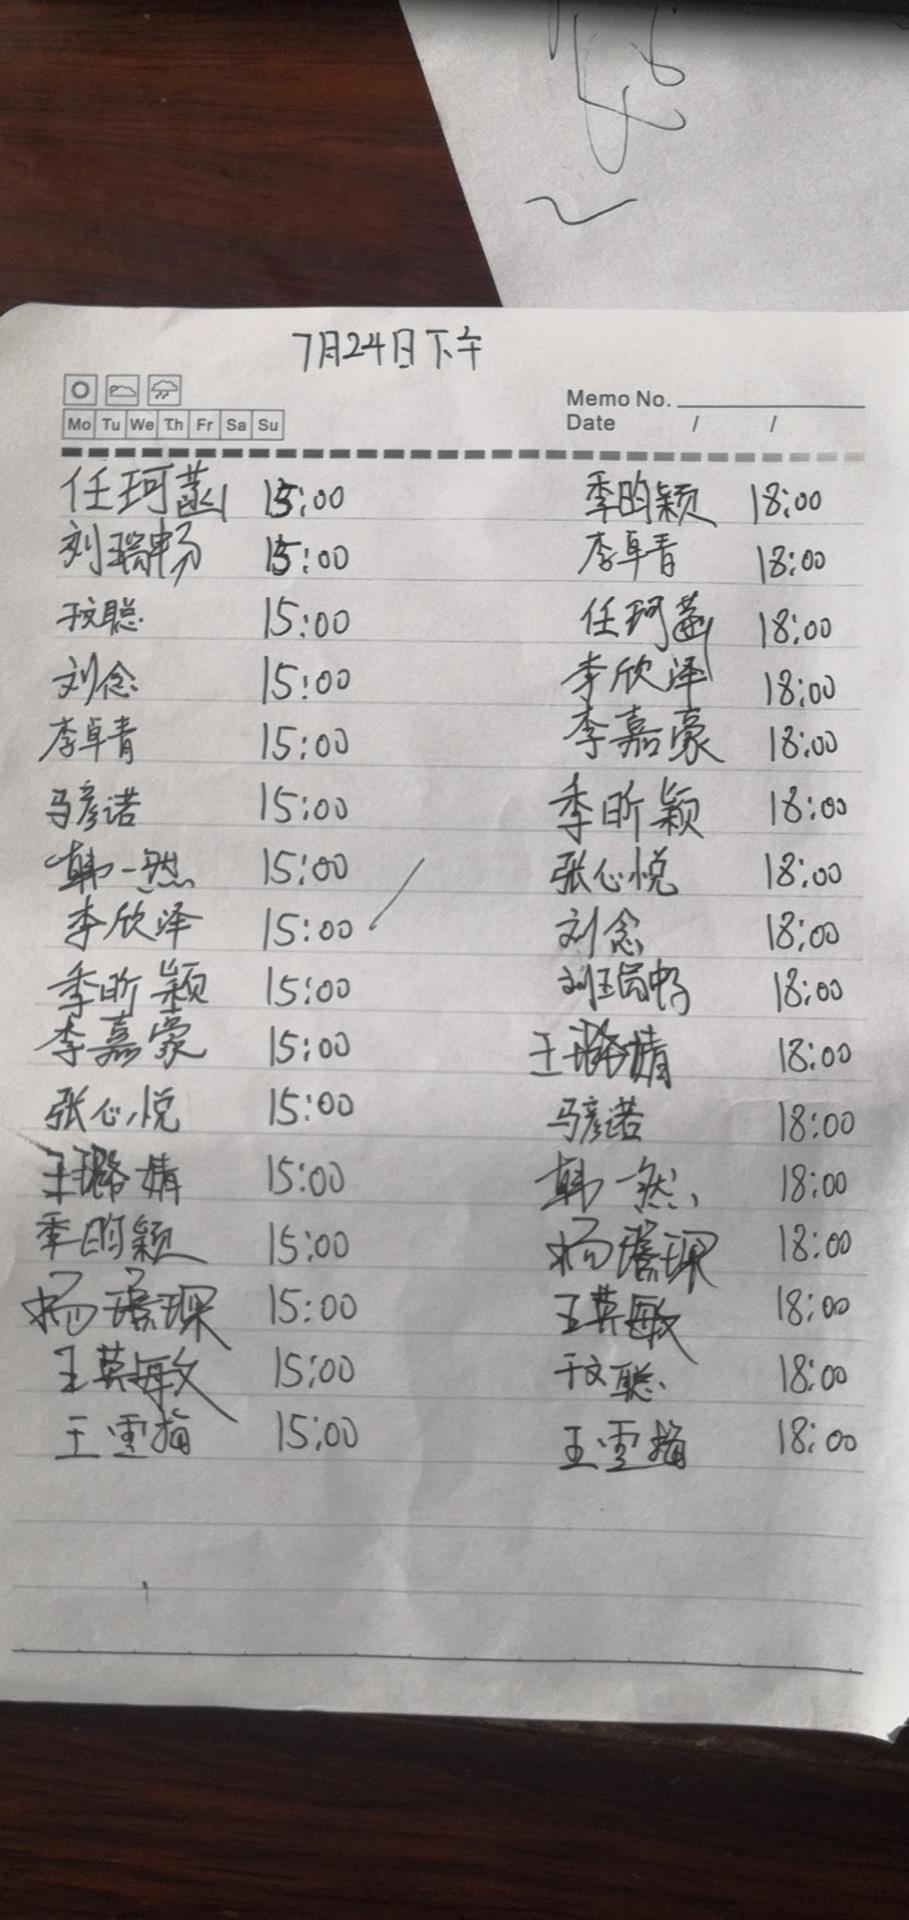 7月24日下午
Memo No.
Mo Tu We Th Fr Sa Su
Date / /
任珂菡 15:00 季昀颖 18:00
刘瑞畅 15:00 李卓青 18:00
于文聪 15:00 任珂菡 18:00
刘念 15:00 李欣泽 18:00
李卓青 15:00 李嘉豪 18:00
马彦诺 15:00 季昕颖 18:00
韩一然 15:00 张心悦 18:00
李欣泽 15:00 刘念 18:00
季昕颖 15:00 刘瑞畅 18:00
李嘉豪 15:00 王璐婧 18:00
张心悦 15:00 马彦诺 18:00
王璐婧 15:00 韩一然 18:00
季昀颖 15:00 杨璿琛 18:00
杨璿琛 15:00 王英敏 18:00
王英敏 15:00 于文聪 18:00
王雪梅 15:00 王雪梅 18:00